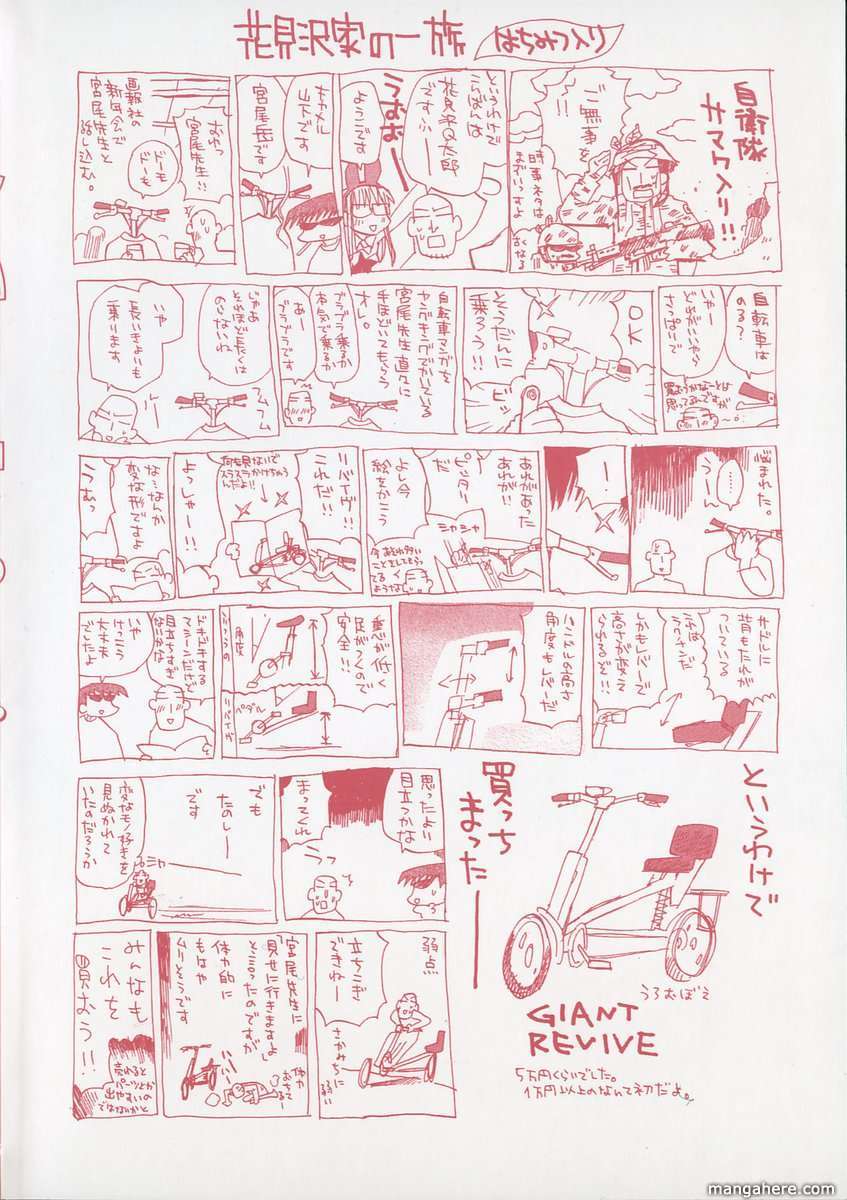 花見沢家の一族
はちみつ入り
自衛隊
サマワ入り!!
ご無事を
!!
時事ネタは
まずいっすよ
古くなる
というわけで
こちらは
花見沢Q太郎
ですふー
うむむー
ようこです
オカメル
山下です
宮尾岳です
おおっ
宮尾先生!!
ドーモ
ドーも
画報社の
新年会で
宮尾先生と
話し込む。
自転車は
のる?
いやー
どれがいいやら
さっぱりで
買おうかなーとは
思ってるんですが
OK
そうだんに
乗ろう!!
ビッ
自転車マンガを
ヤングキングでかいている
宮尾先生直々に
手ほどいてもらう
オレ。
ブラブラ乗るか
本気で乗るか
あー
ブラブラです
じゃあ
それほど長くは
のらないね
フムフム
いや
長いきょりも
乗ります
ルー
悩まれた。
……
うーん
!
あれがあった
あれが!!
ピッタリ
だ
よし今
絵をかこう
シャシャ
リバイヴ!!
これだ!!
何も見ないで
スラスラかけちゃう
んだよ!!
よっしゃー!!
な…なんか
変な形ですよ
うむっ
サドルに
背もたれが
ついている
しかもレバーで
高さが変え
られるぞ!!
ハンドルの高さ
角度もレバーだ
重心が低く
足がつくので
安全!!
ふつうの
角度
ペダル
リバイヴ
ドキドキする
マシーンだけど
目立ちすぎ
ないかな
いや
けっこう
大丈夫
でしたよ
というわけで
買っち
まったー
うろおぼえ
GIANT
REVIVE
5万円くらいでした。
1万円以上のなんて初だよ。
思ったよい
目立つかな
まってくれ
うっ
でも
たのしー
です
シャ
変なモノ好きを
見ぬかれて
いたのだろうか
弱点
立ちこぎ
できねー
さかみちに
弱い
宮尾先生に
「見せに行きますよ」
と言ったのですが
体力的に
もはや
ムリそうです
みんなも
これを
買おう!!
売れると
パーツとか
出やすいの
ではないかと
www.mangahere.com